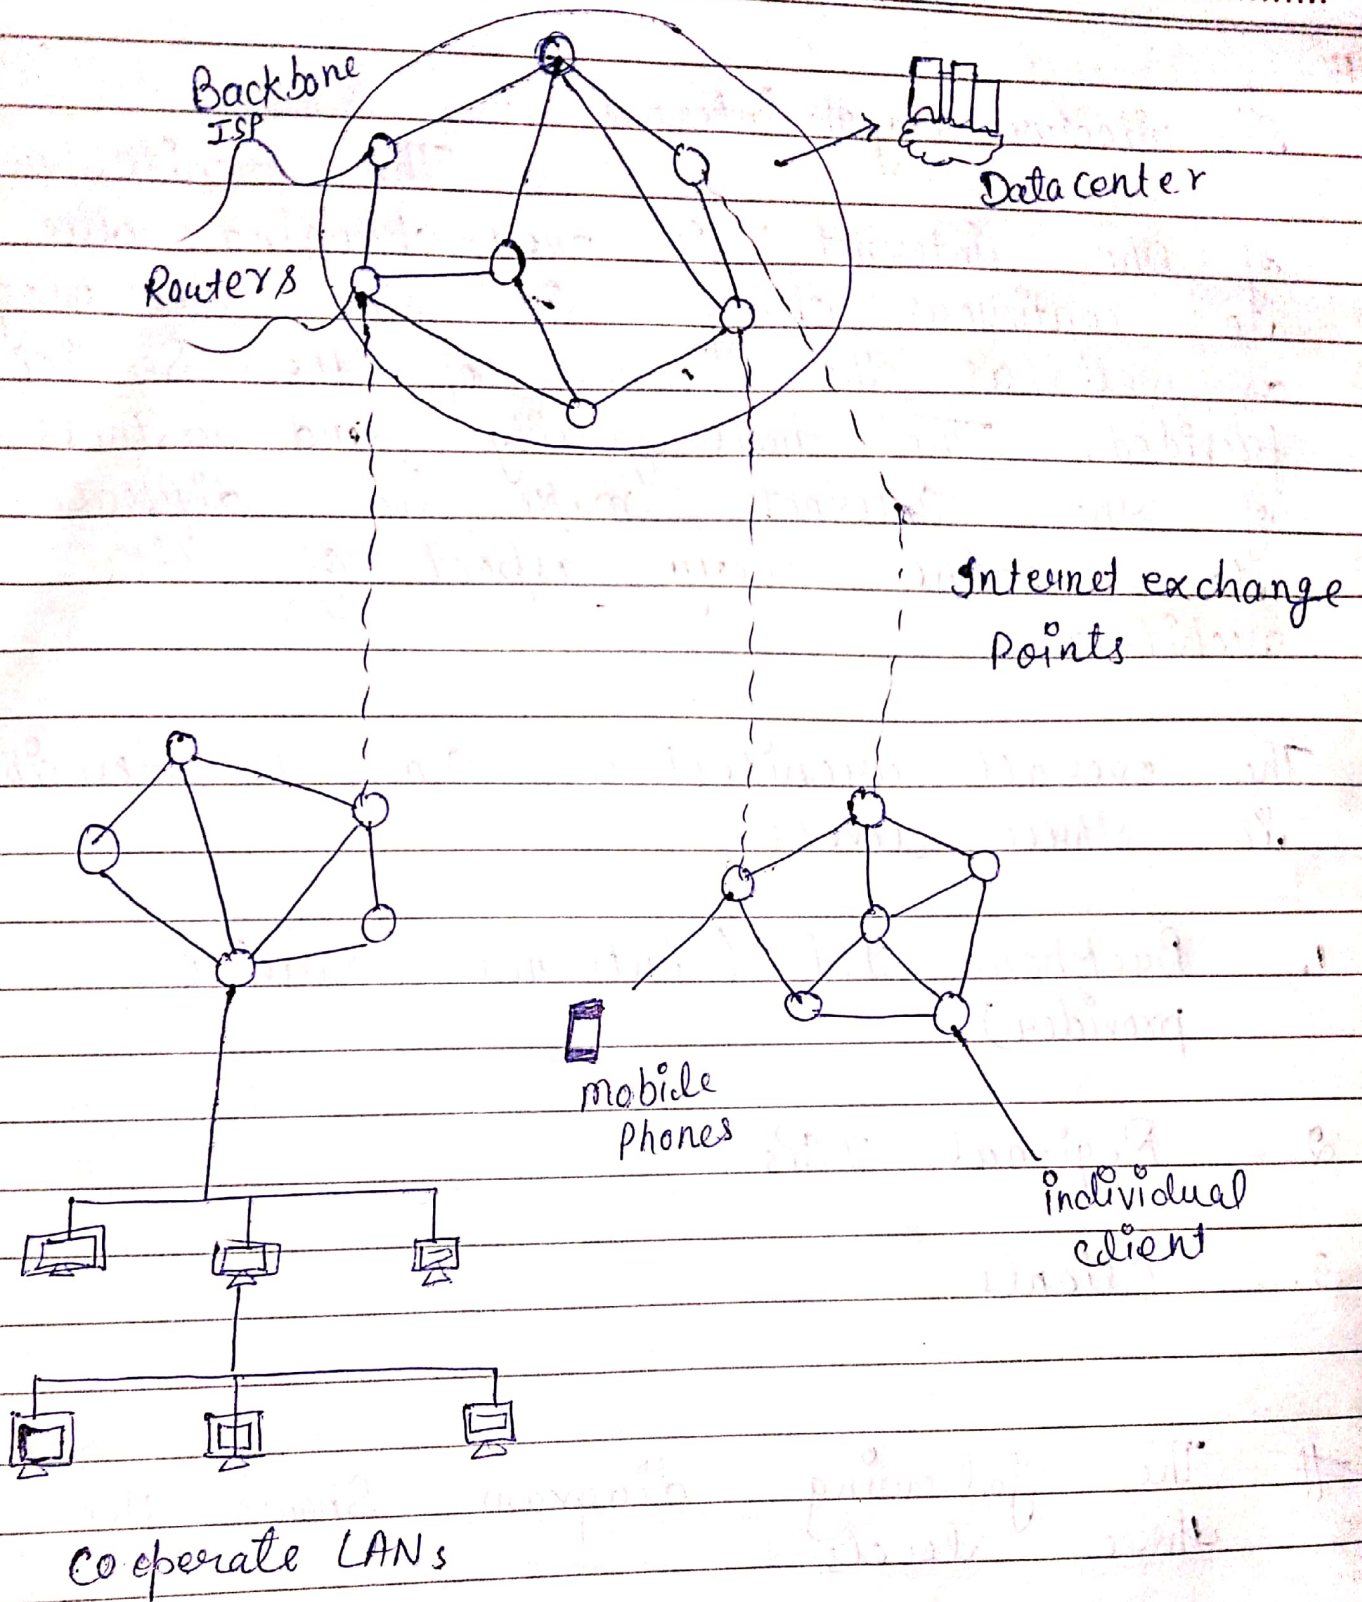 Backbone
ISP
Datacenter
Routers
Internet exchange
Points
mobile
Phones
individual
client
Cooperate LANs